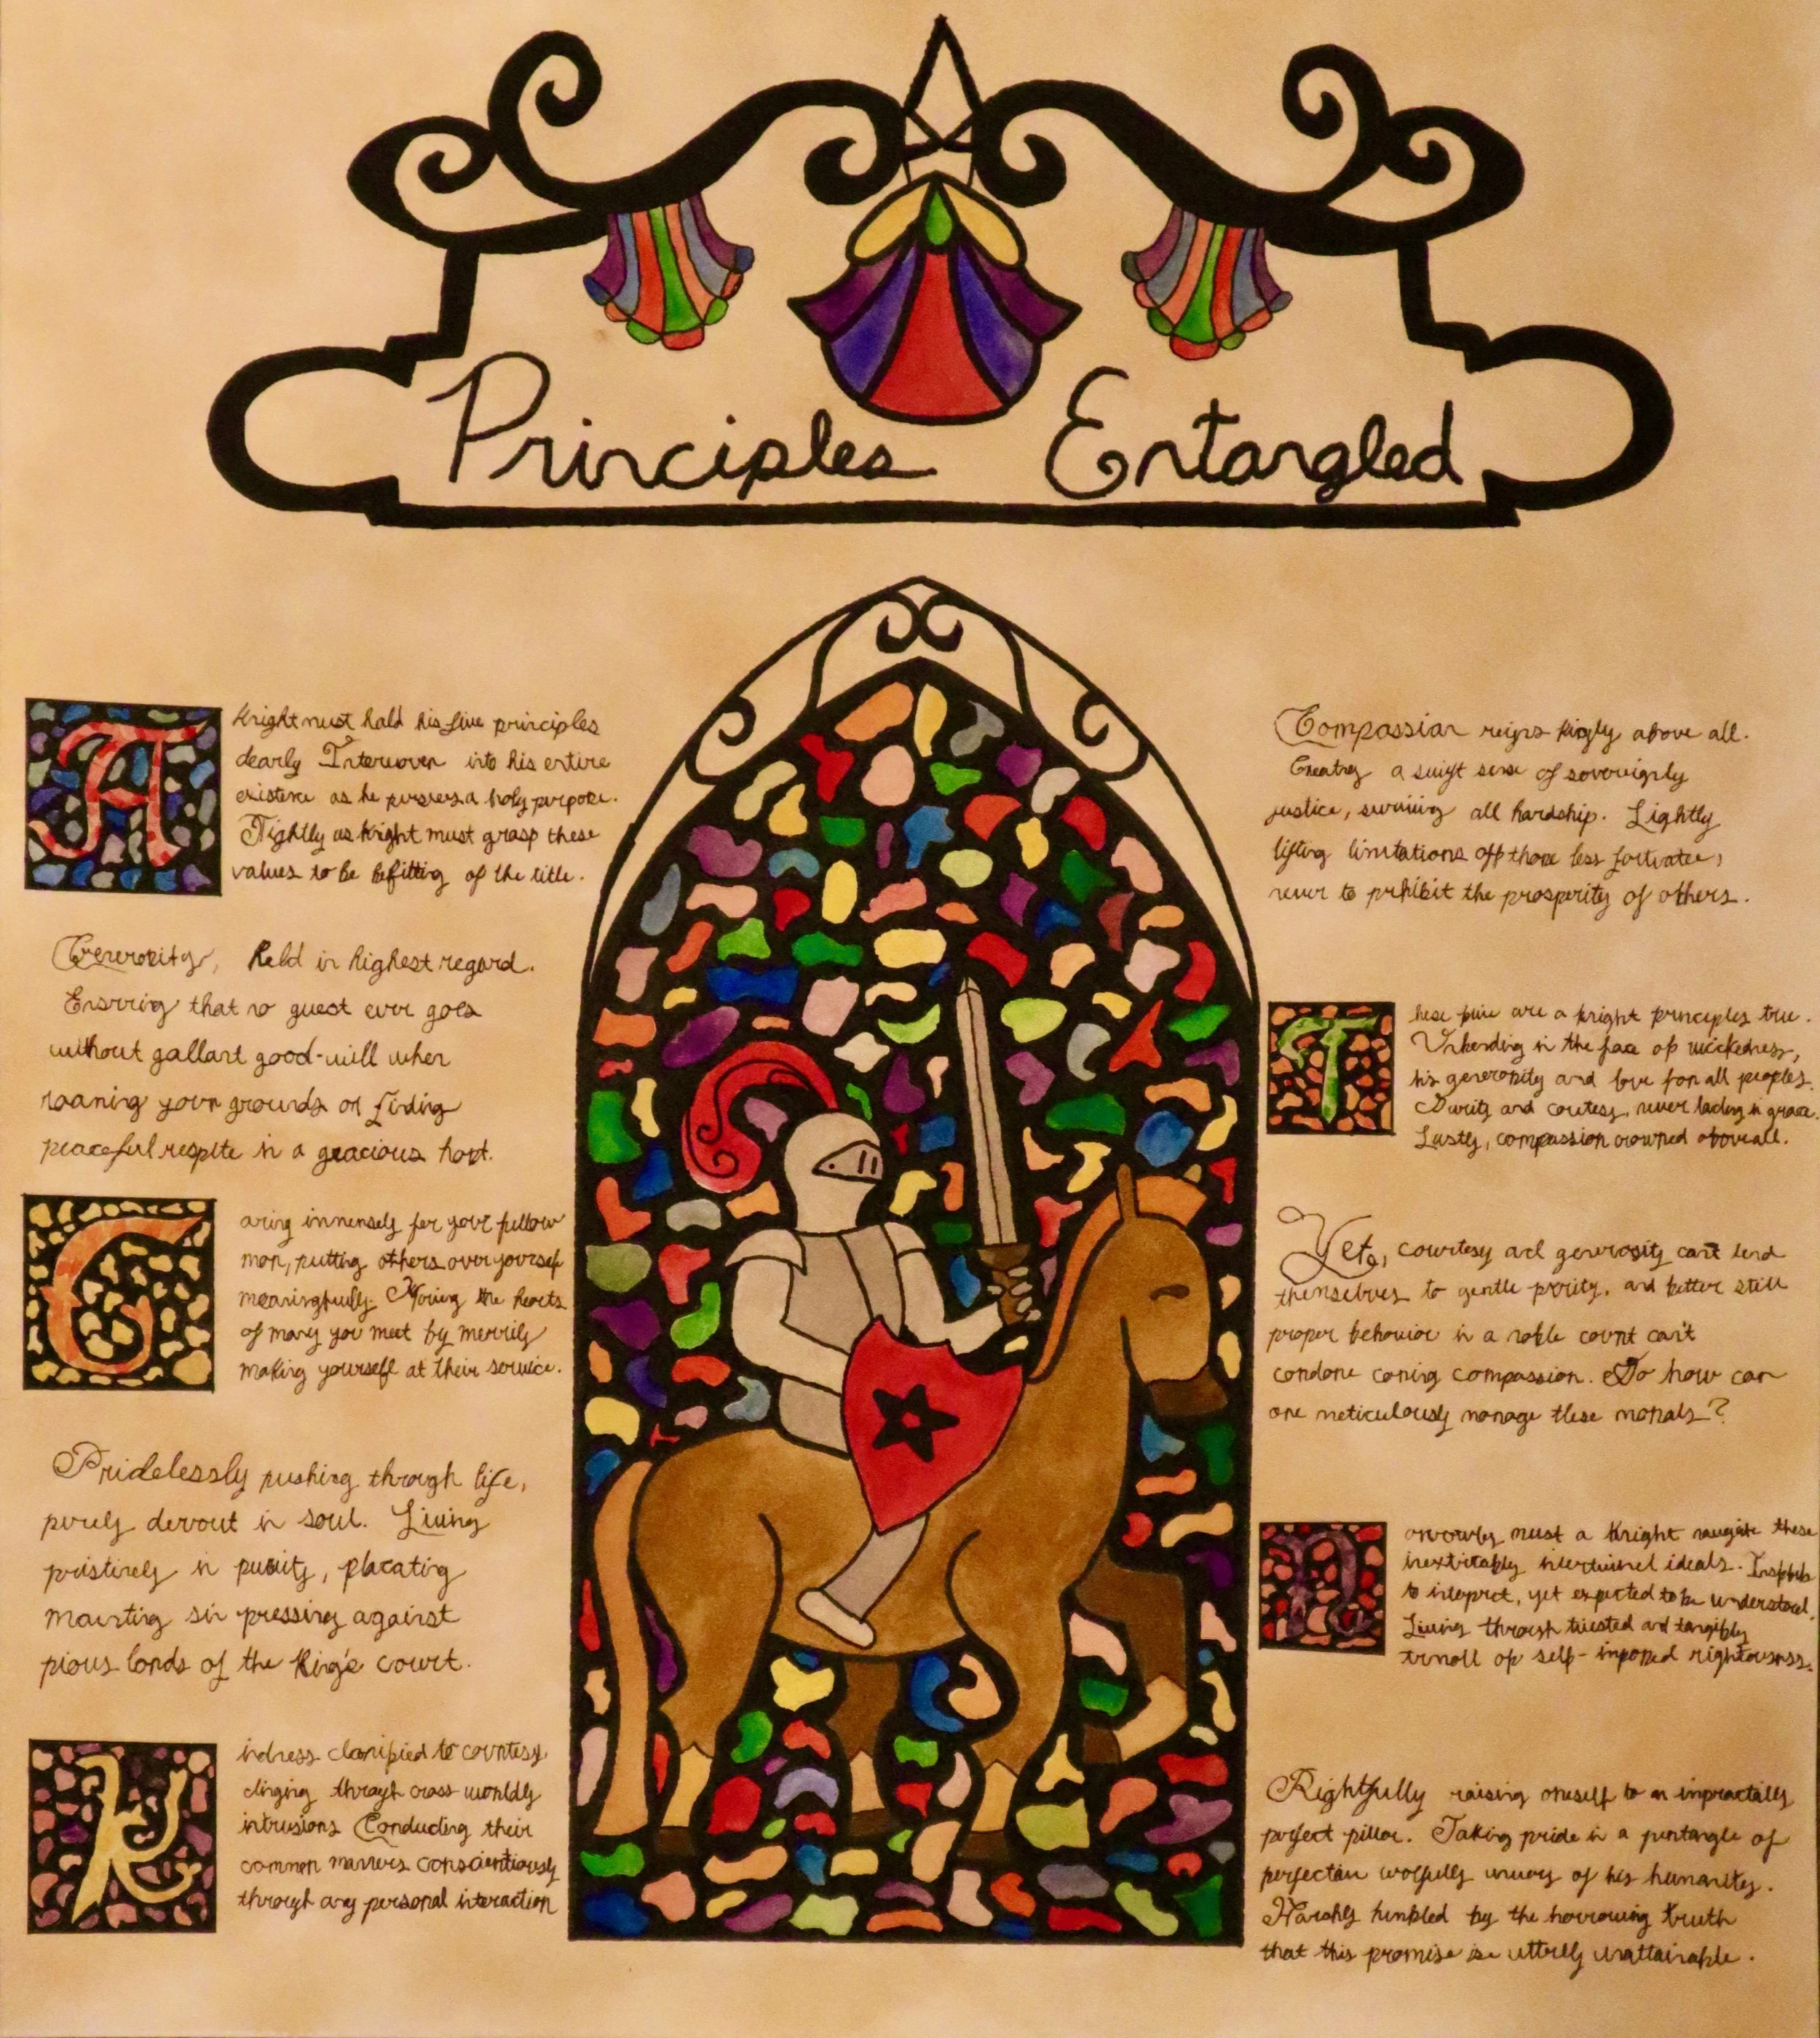 Principles Entangled
A knight must hold his five principles
dearly Interwoven into his entire
existence as he pursues a holy purpose.
Tightly as knight must grasp these
values to be befitting of the title.
Generosity, held in highest regard.
Ensuring that no guest ever goes
without gallant good-will when
roaming your grounds or finding
peaceful respite in a gracious host.
Caring immensely for your fellow
man, putting others over yourself
meaningfully. Moving the hearts
of many you meet by merrily
making yourself at their service.
Pridelessly pushing through life,
purely devout in soul. Living
pristinely in purity, placating
mounting sin pressing against
pious lands of the King's court.
Kindness clarified to courtesy
clinging through crass worldly
intrusions Conducting their
common manners conscientiously
through any personal interaction
Compassion reigns highly above all.
Creating a swift sense of sovereignly
justice, surviving all hardship. Lightly
lifting limitations off those less fortunate,
never to prhibit the prosperity of others.
These five are a knight principles true.
Unbending in the face of wickedness,
his generosity and love for all peoples.
Purity and courtesy, never lacking in grace.
Lastly, compassion crowned above all.
Yet, courtesy and generosity can't lend
themselves to gentle purity, and better still
proper behavior in a noble court can't
condone caring compassion. So how can
one meticulously manage these morals?
Narrowly must a knight navigate these
inextricably intertwined ideals.
to interpret, yet expected to be understood.
Living through twisted and tangibly
turmoil of self-imposed righteousness.
Rightfully raising oneself to an impractally
perfect pillar. Taking pride in a pentangle of
perfection woefully unwary of his humanity.
Harshly humbled by the harrowing truth
that this promise is utterly unattainable.